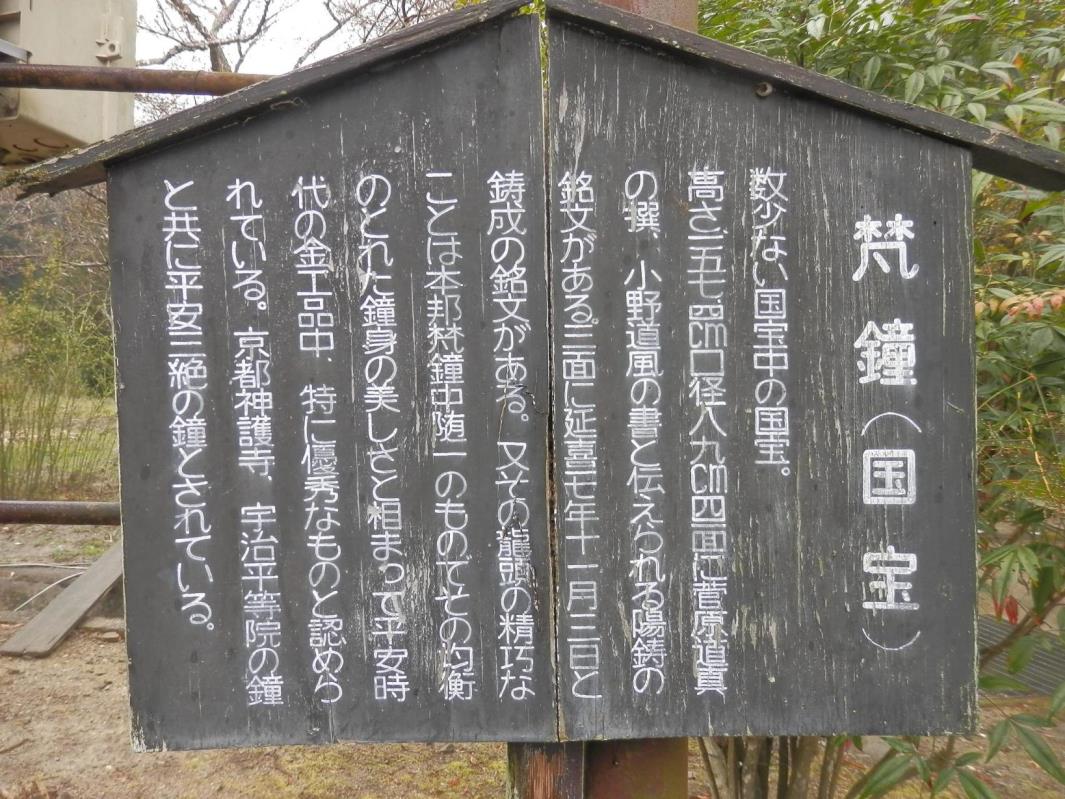 梵鐘（国宝）
数少ない国宝中の国宝。
高さ一五七.四cm口径八九cm四面に菅原道真
の撰、小野道風の書と伝えられる陽鋳の
銘文がある。三面に延喜七年十一月三日と
鋳成の銘文がある。又その龍頭の精巧な
ことは本邦梵鐘中随一のものでその均衡
のとれた鐘身の美しさと相まって平安時
代の金工品中、特に優秀なものと認めら
れている。京都神護寺、宇治平等院の鐘
と共に平安三絶の鐘とされている。